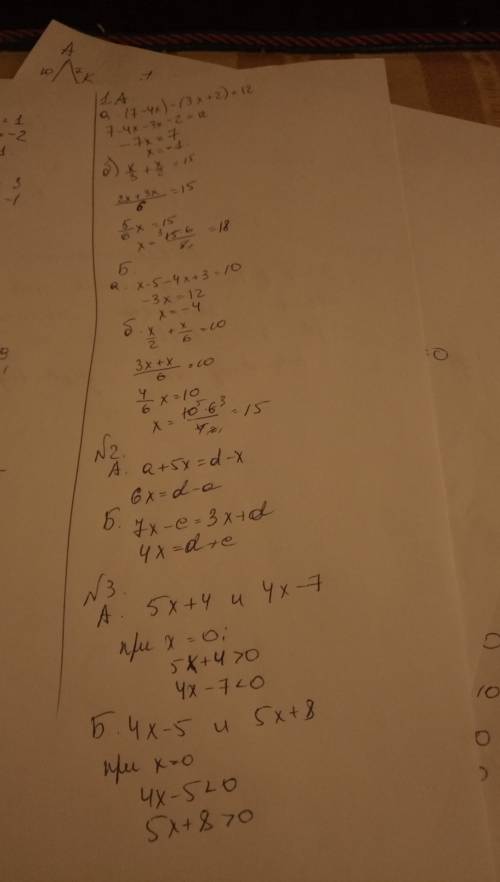 A
10
K
1
= 1
= -2
3
-1
1.A
а. (7-4x) - (3x+2) = 12
7-4x-3x-2=12
-7x=7
x=-1
б) x/3 + x/2 = 15
2x+3x/6 = 15
5/6 x = 15
x = 15·6/5 = 18
Б
а. x-5-4x+3=10
-3x=12
x=-4
б. x/2 + x/6 = 10
3x+x/6 = 10
4/6 x = 10
x = 10·6/4 = 15
№2.
А. a+5x=d-x
6x=d-a
Б. 7x-c=3x+d
4x=d+c
№3.
А. 5x+4 и 4x-7
при x=0;
5x+4>0
4x-7<0
Б. 4x-5 и 5x+8
при x=0
4x-5<0
5x+8>0
=0
0
10
0